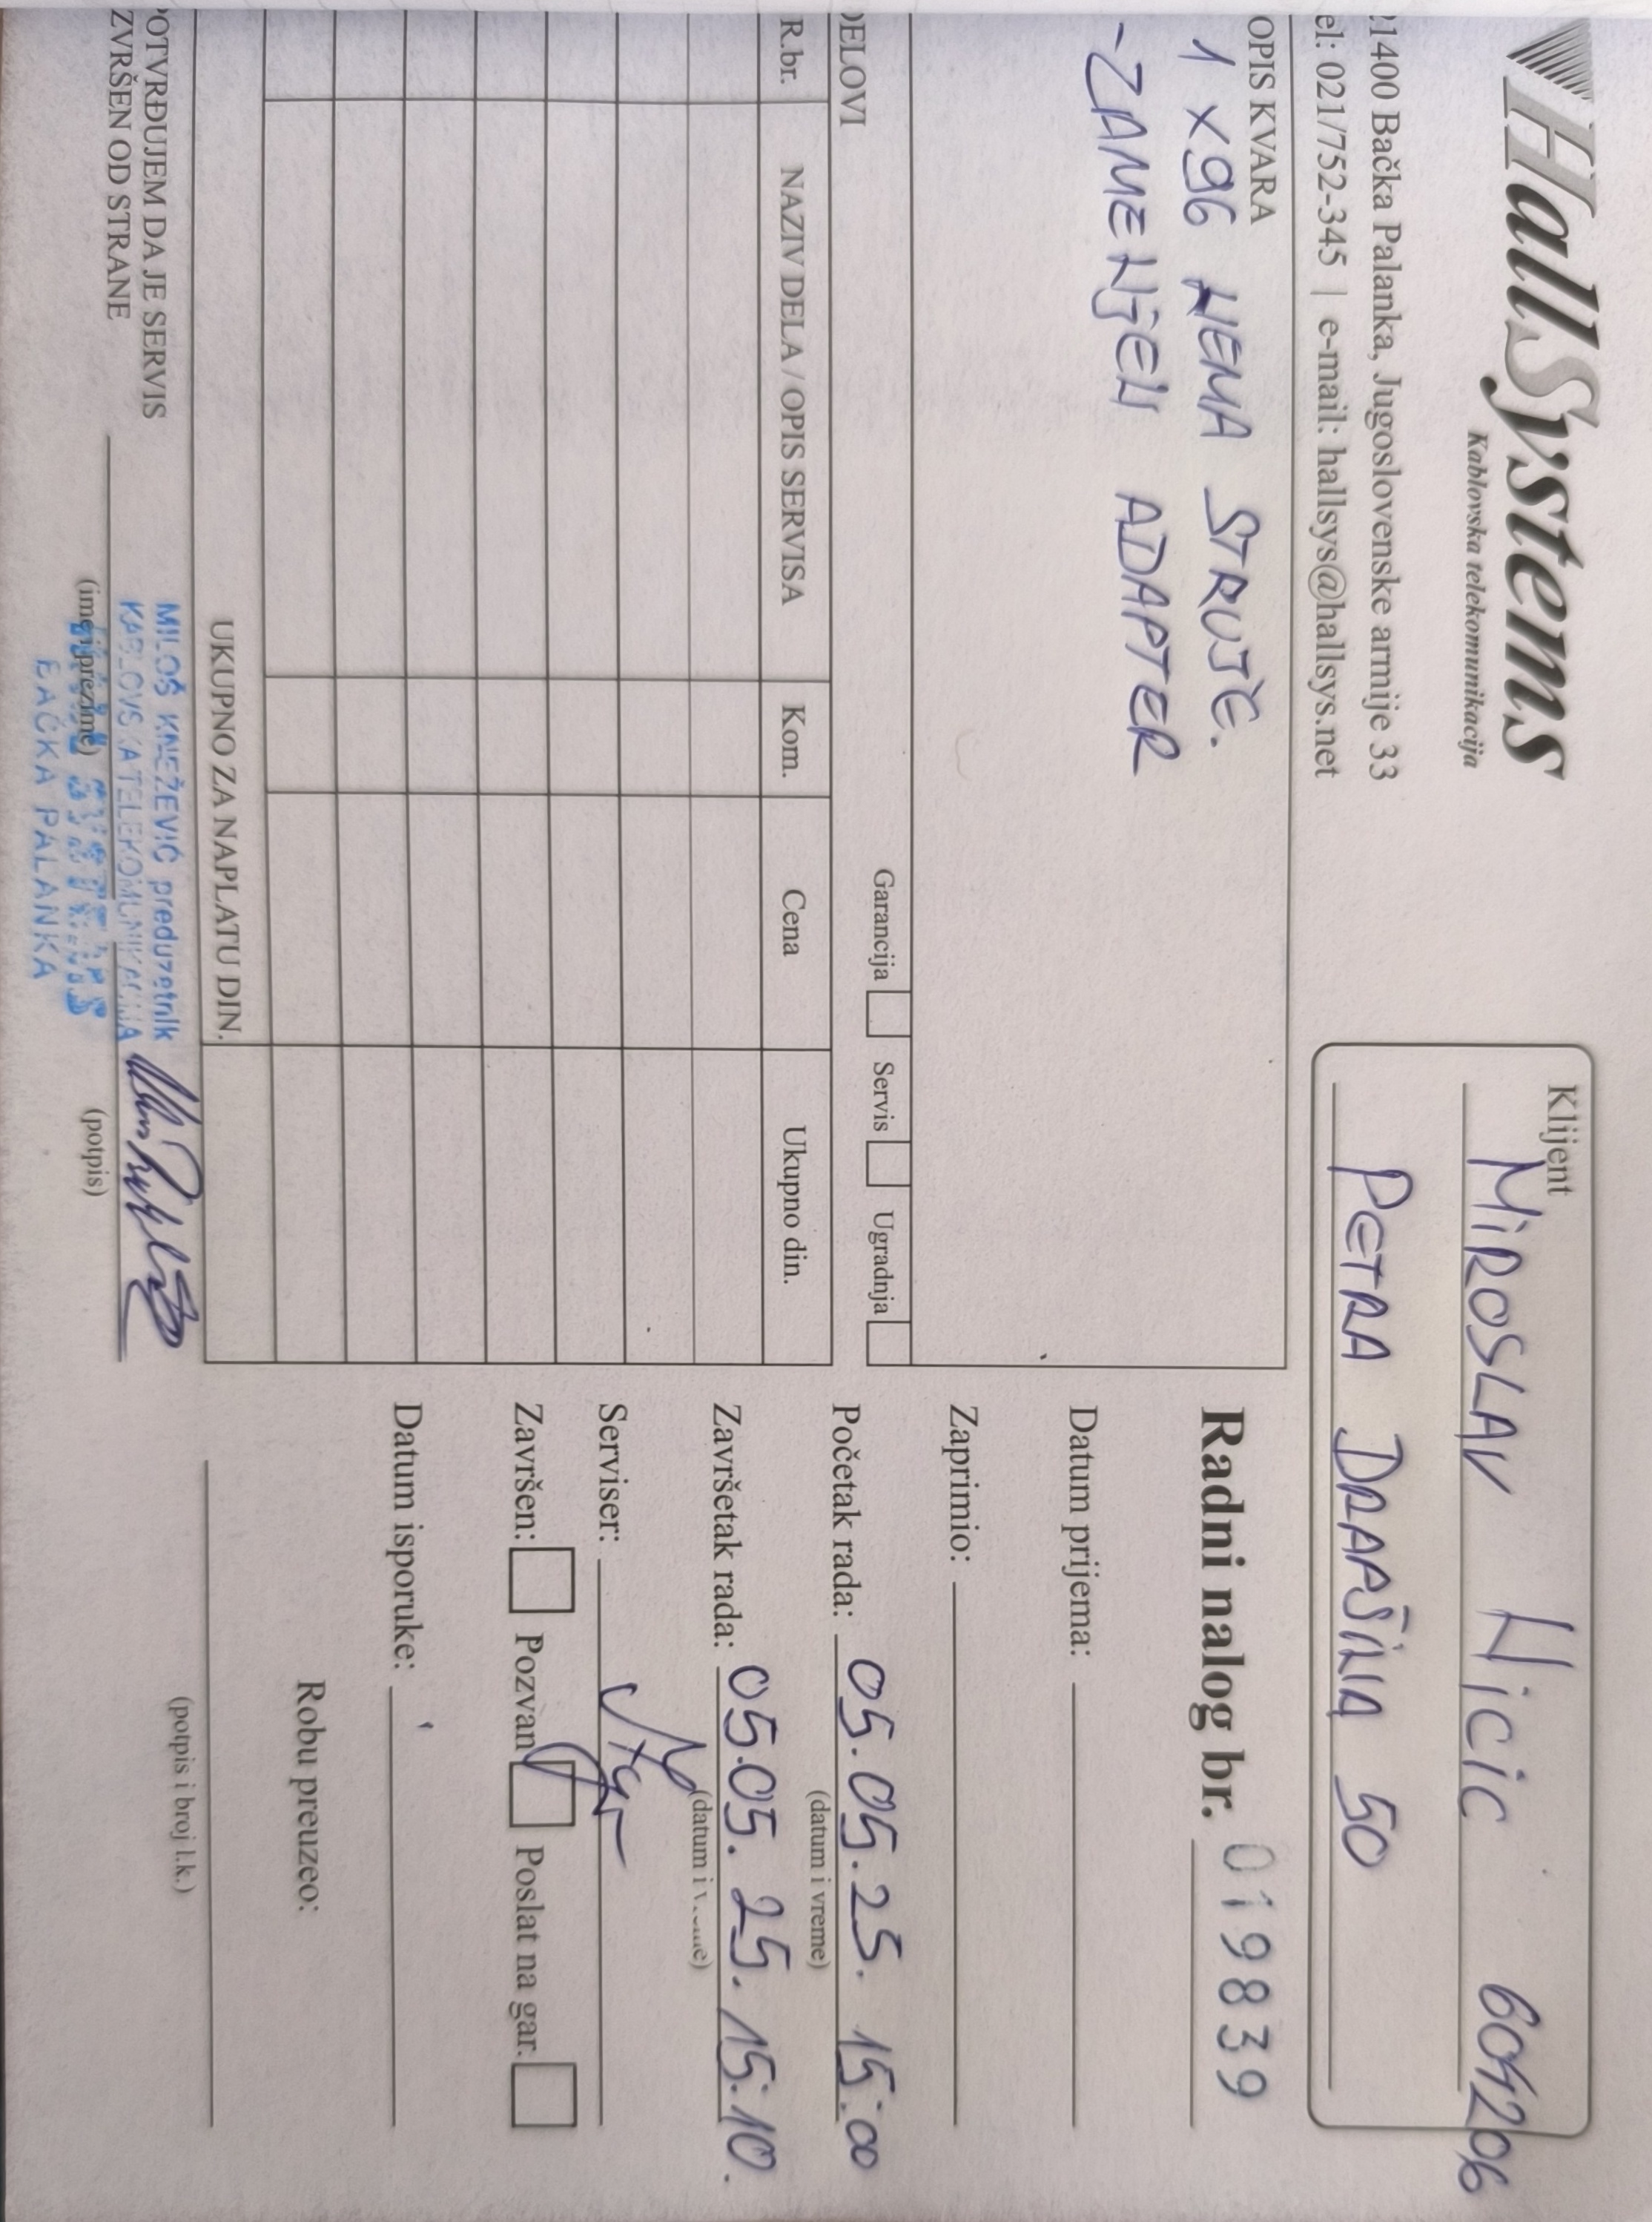 HallSystems
Kablovska telekomunikacija
21400 Bačka Palanka, Jugoslovenske armije 33
el: 021/752-345 | e-mail: hallsys@hallsys.net
Klijent
MIROSLAV HICIC 6041296
PETRA DRAPŠINA 50
OPIS KVARA
1 X96 NEMA STRUJE.
-ZAMENJEN ADAPTER
Garancija Servis Ugradnja
DELOVI
R.br. NAZIV DELA / OPIS SERVISA Kom. Cena Ukupno din.
UKUPNO ZA NAPLATU DIN.
Radni nalog br. 019839
Datum prijema:
Zaprimio:
Početak rada: 05.05.25. 15:00
(datum i vreme)
Završetak rada: 05.05.25. 15:10.
(datum i vreme)
Serviser:
Završen: Pozvan Poslat na gar.
Datum isporuke:
Robu preuzeo:
(potpis i broj l.k.)
POTVRĐUJEM DA JE SERVIS
IZVRŠEN OD STRANE
(ime i prezime) (potpis)
MILOŠ KNEŽEVIĆ preduzetnik
KABLOVSKA TELEKOMUNIKACIJA
BAČKA PALANKA